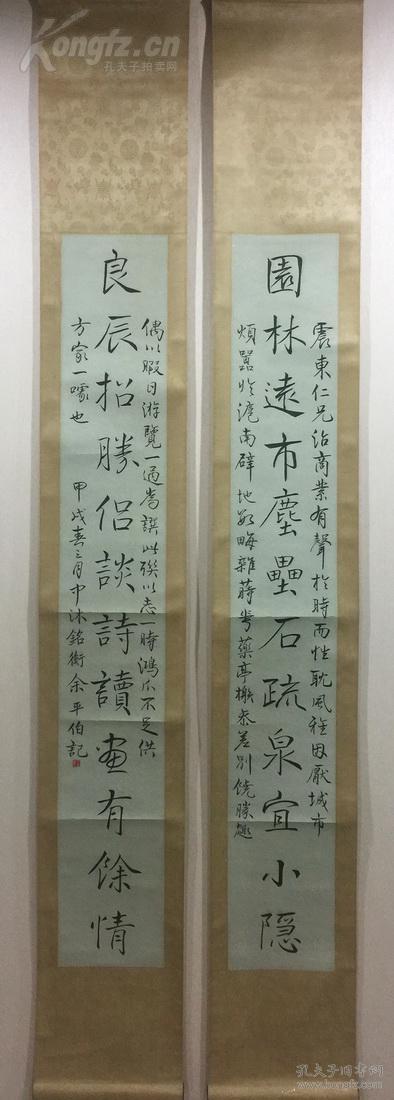 Kongfz.cn
孔夫子拍卖网
震東仁兄治商業有聲於時而性耽風雅因厭城市
園林遠市塵壘石疏泉宜小隱
煩囂於滬南辟地數畮雜蒔藥亭榭參差別饒勝趣
偶以暇日游覽一過為譔此聯以志一時鴻爪不足供
良辰招勝侶談詩讀畫有餘情
方家一噱也 甲戌春三月中沐銘衡余平伯記
孔夫子旧书网
www.kongfz.com